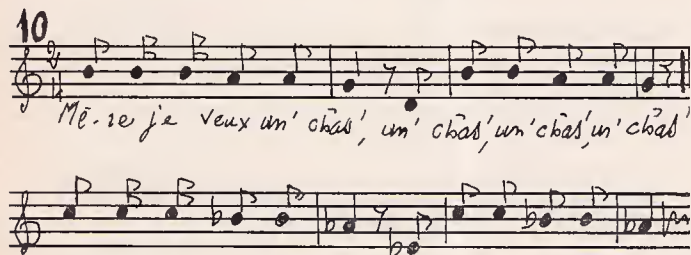 10
2
4
Mē-re je veux un' chas', un' chas', un' chas', un' chas'